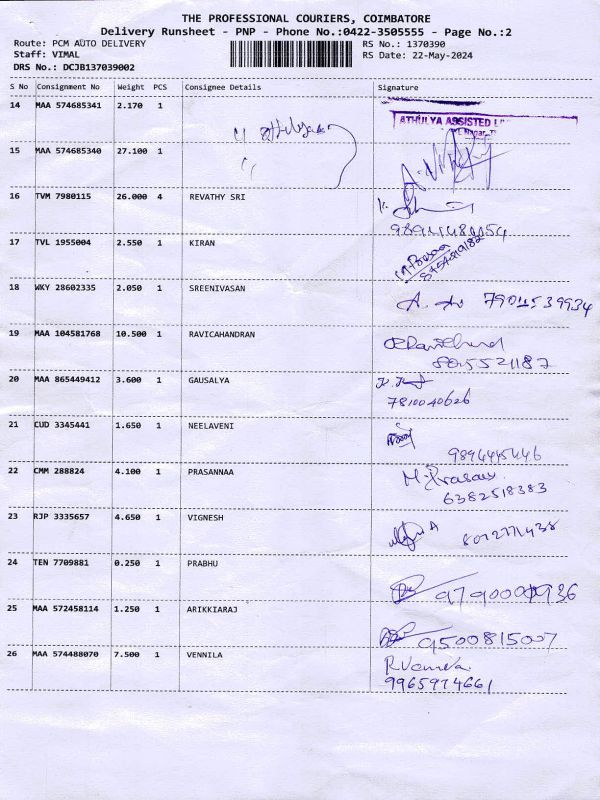 THE PROFESSIONAL COURIERS, COIMBATORE
Delivery Runsheet - PNP - Phone No.:0422-3505555 - Page No.:2
Route: PCM AUTO DELIVERY RS No.: 1370390
Staff: VIMAL RS Date: 22-May-2024
DRS No.: DCJB137039002
S No Consignment No Weight PCS Consignee Details Signature
14 MAA 574685341 2.170 1
ATHULYA ASSISTED
15 MAA 574685340 27.100 1
16 TVM 7980115 26.000 4 REVATHY SRI
17 TVL 1955004 2.550 1 KIRAN
8754819182
18 WKY 28602335 2.050 1 SREENIVASAN
19 MAA 104581768 10.500 1 RAVICAHANDRAN
8015521187
20 MAA 865449412 3.600 1 GAUSALYA
7810040626
21 CUD 3345441 1.650 1 NEELAVENI
9894445446
22 CMM 288824 4.100 1 PRASANNAA
6382518383
23 RJP 3335657 4.650 1 VIGNESH
24 TEN 7709881 0.250 1 PRABHU
25 MAA 572458114 1.250 1 ARIKKIARAJ
9500815007
26 MAA 574488070 7.500 1 VENNILA
9965974661